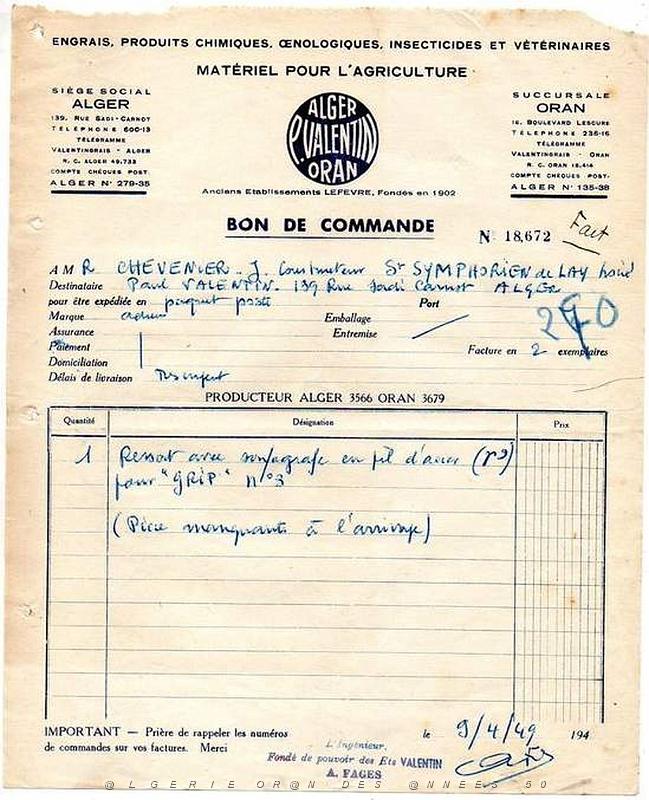 ENGRAIS, PRODUITS CHIMIQUES, ŒNOLOGIQUES, INSECTICIDES ET VÉTÉRINAIRES
MATÉRIEL POUR L'AGRICULTURE
SIÈGE SOCIAL
ALGER
139, RUE SADI-CARNOT
TÉLÉPHONE 600-13
TÉLÉGRAMME
VALENTINGRAIS - ALGER
R. C. ALGER 49.733
COMPTE CHÈQUES POST.
ALGER N° 279-35
ALGER
P. VALENTIN
ORAN
Anciens Etablissements LEFEVRE, Fondés en 1902
SUCCURSALE
ORAN
16, BOULEVARD LESCURE
TÉLÉPHONE 236-16
TÉLÉGRAMME
VALENTINGRAIS - ORAN
R. C. ORAN 15.414
COMPTE CHÈQUES POST.
ALGER N° 135-38
BON DE COMMANDE
N° 18,672
Fait
A M R CHEVENIER. J. Constructeur St SYMPHORIEN de LAY
Destinataire Paul VALENTIN. 139 Rue Sadi Carnot ALGER
pour être expédiée en paquet poste Port
Marque Emballage
Assurance Entremise
Paiement Facture en 2 exemplaires
Domiciliation
Délais de livraison
PRODUCTEUR ALGER 3566 ORAN 3679
Quantité Désignation Prix
1 Ressort avec en fil d'acier
pour "GRIP" n°3
(Pièce manquante à l'arrivage)
IMPORTANT — Prière de rappeler les numéros
de commandes sur vos factures. Merci
le 9/4/49 194
L'Ingénieur,
Fondé de pouvoir des Ets VALENTIN
A. FAGES
@LGERIE OR@N DES @NNEES 50